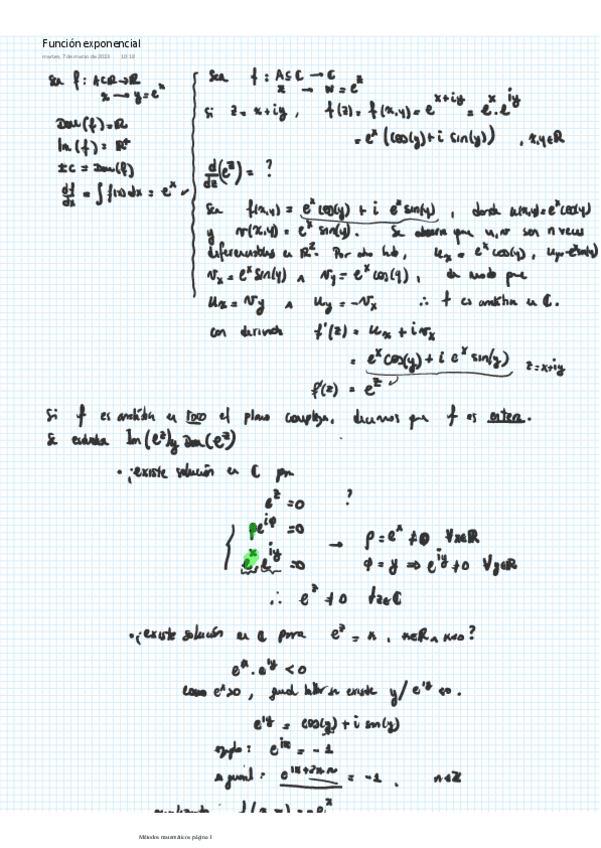 Función exponencial
martes, 7 de marzo de 2023 10:18
Sea f: A⊆ℝ→ℝ
x → y=e^x
Dom(f)=ℝ
Im(f)=ℝ^+
±c = Dom(f)
df/dx = ∫f(x)dx = e^x
Sea f: A⊆ℂ → ℂ
z → w=e^z
Si z=x+iy, f(z)=f(x,y)=e^{x+iy}=e^x·e^{iy}
= e^x(cos(y)+i sin(y)), x,y∈ℝ
d/dz(e^z) = ?
Sea f(x,y) = e^x cos(y) + i e^x sin(y), donde u(x,y)=e^x cos(y)
y v(x,y)=e^x sin(y). Se observa que u,v son n veces
diferenciables en ℝ². Por otro lado, u_x = e^x cos(y), u_y=-e^x sin(y)
v_x = e^x sin(y) ∧ v_y = e^x cos(y), de modo que
u_x = v_y ∧ u_y = -v_x ∴ f es analítica en ℂ.
con derivada f'(z) = u_x + i v_x
= e^x cos(y) + i e^x sin(y) z=x+iy
f'(z) = e^z
Si f es analítica en todo el plano complejo, decimos que f es entera.
Se estudia Im(e^z) y Dom(e^z)
• ¿existe solución en ℂ para
e^z = 0 ?
ρe^{iφ} = 0
e^x e^{iy} = 0 → ρ = e^x ≠ 0 ∀x∈ℝ
φ = y ⇒ e^{iy} ≠ 0 ∀y∈ℝ
∴ e^z ≠ 0 ∀z∈ℂ
• ¿existe solución en ℂ para e^z = x, x∈ℝ ∧ x<0?
e^x · e^{iy} < 0
como e^x>0, existe y / e^{iy} <0.
e^{iy} = cos(y) + i sin(y)
ejemplo: e^{iπ} = -1
e^{iπ+2πn} = -1, n∈ℤ
Métodos matemáticos página 1